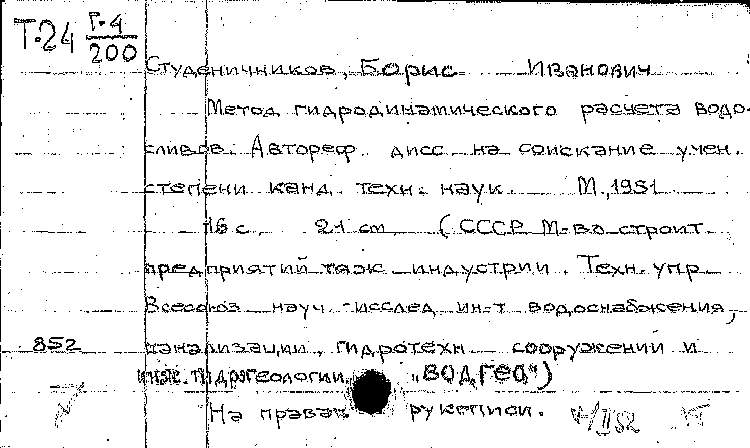 Т-24 Г-4/200
Студеничников, Борис Иванович
Метод гидродинамического расчета водо-
сливов. Автореф. дисс. на соискание учен.
степени канд. техн. наук. М., 1951
16 с. 21 см. (СССР. М-во строит.
предприятий тяж. индустрии. Техн. упр.
Всесоюз. науч.-исслед. ин-т водоснабжения,
852 канализации, гидротехн. сооружений и
инж. гидрогеологии. "ВОДГЕО")
На правах рукописи.